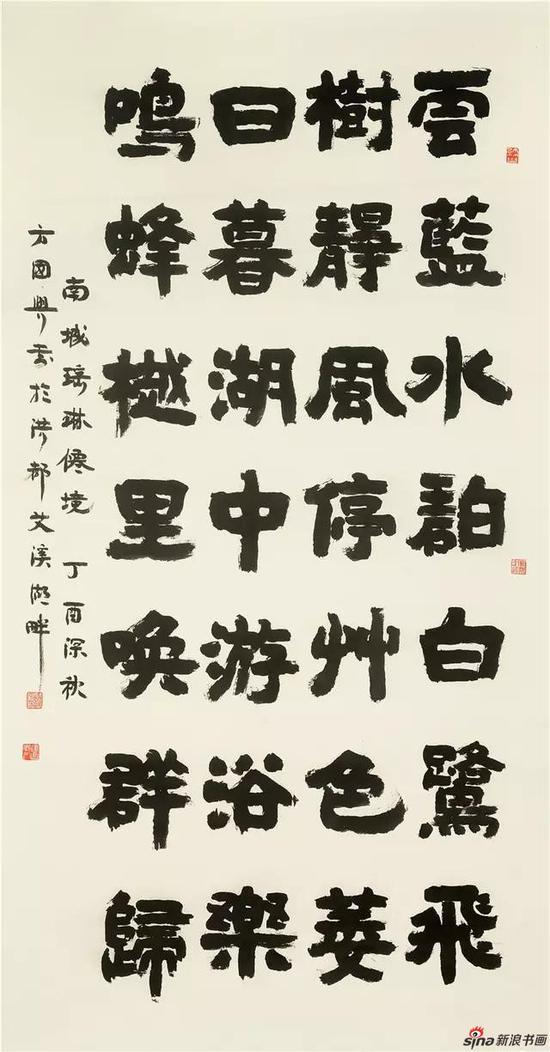 雲藍水碧白鷺飛
樹靜風停艸色萋
日暮湖中游浴樂
鳴蜂樾里喚群歸
南城瑶琳僊境 丁酉深秋
方國興書於洪都艾溪湖畔
sina新浪书画